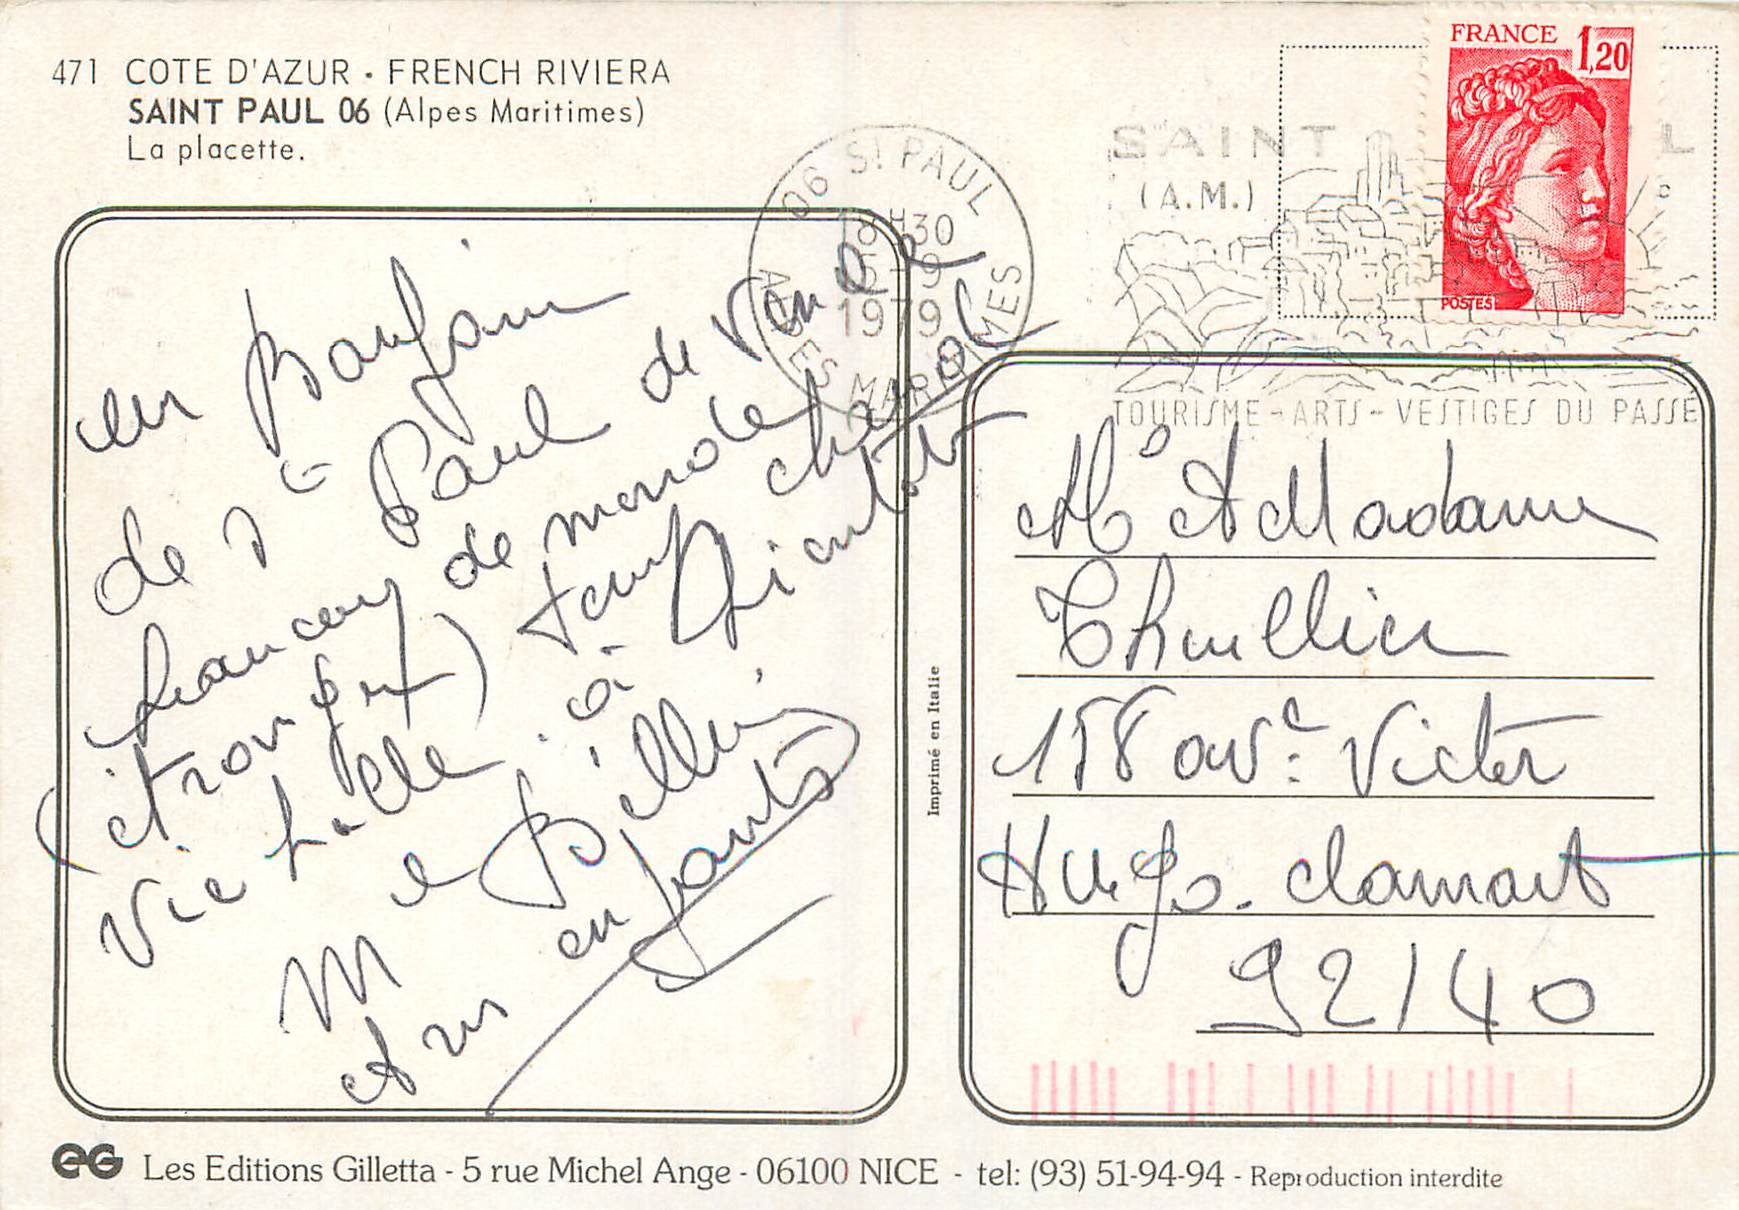 471 COTE D'AZUR • FRENCH RIVIERA
SAINT PAUL 06 (Alpes Maritimes)
La placette.
FRANCE 1,20
POSTES
06 ST PAUL
18H30
5-9
1979
ALPES MARITIMES
SAINT PAUL
(A.M.)
TOURISME - ARTS - VESTIGES DU PASSÉ
un Bonjour
de St Paul de Vence
beaucoup de monde
(étrangers) temps chaud
vie belle. à Bientôt
M e Billin
et vos enfants
Mr et Madame
Thuillier
158 ave: Victor
Hugo. Clamart
92140
Imprimé en Italie
eG Les Editions Gilletta - 5 rue Michel Ange - 06100 NICE - tel: (93) 51-94-94 - Reproduction interdite